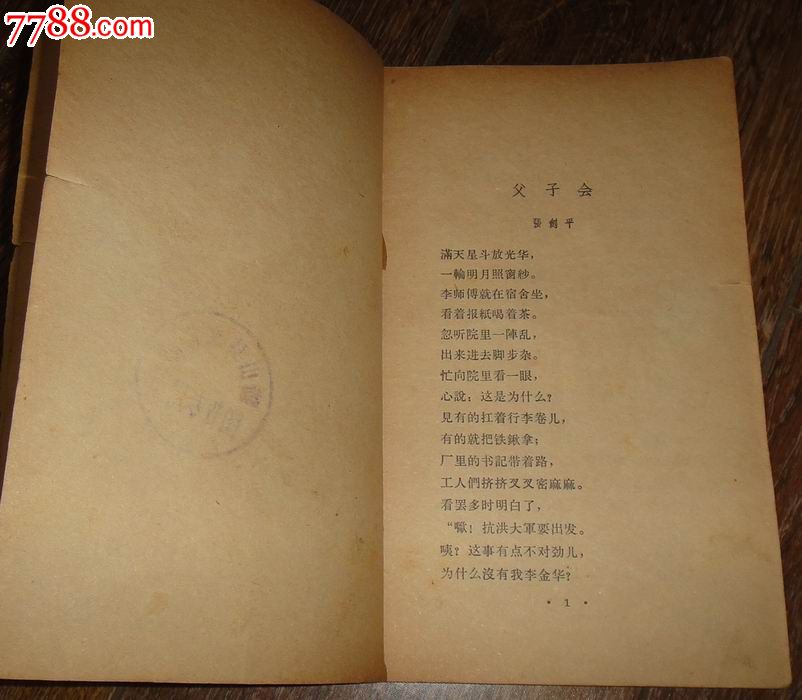 7788.com
父子会
張劍平
滿天星斗放光华，
一輪明月照窗紗。
李师傅就在宿舍坐，
看着报紙喝着茶。
忽听院里一陣乱，
出来进去脚步杂。
忙向院里看一眼，
心說：这是为什么？
見有的扛着行李卷儿，
有的就把铁鍬拿；
厂里的书記带着路，
工人們挤挤叉叉密麻麻。
看罢多时明白了，
“噷！抗洪大軍要出发。
咦？这事有点不对劲儿，
为什么沒有我李金华？
• 1 •